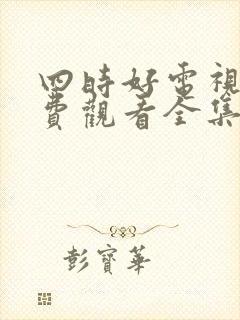 四時好電視
費觀看全集
彭寶華